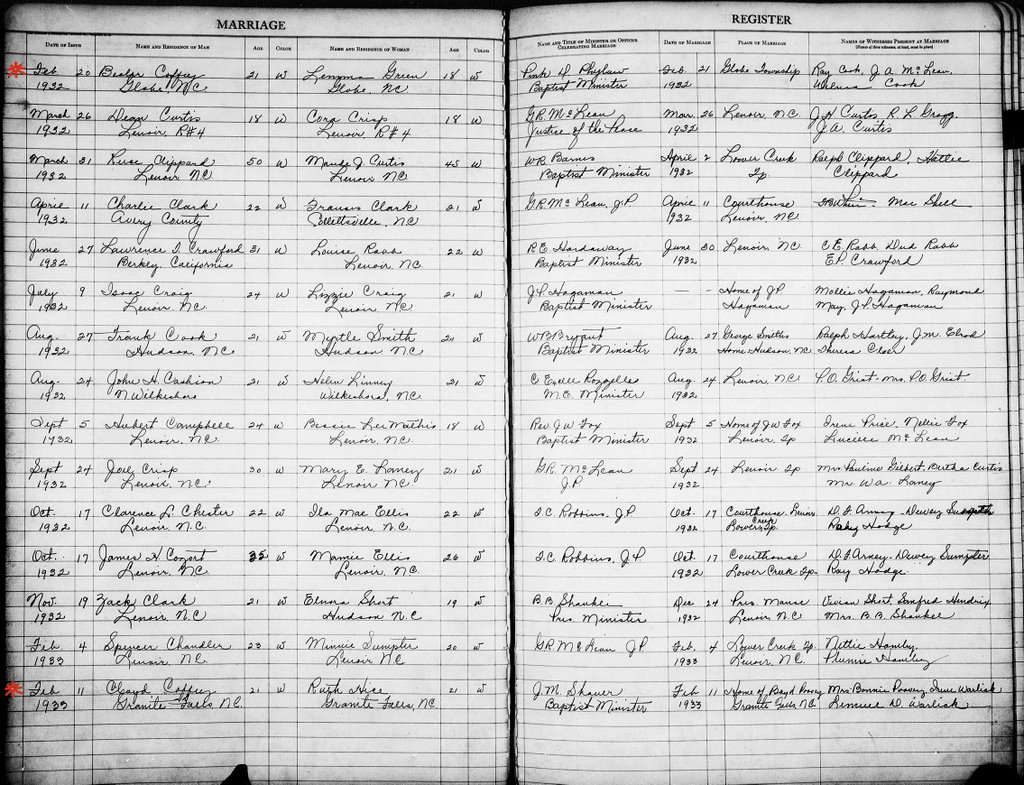 MARRIAGE
DATE OF ISSUE NAME AND RESIDENCE OF MAN AGE COLOR NAME AND RESIDENCE OF WOMAN AGE COLOR
Feb 20 Coffey 21 W Green 18 W
1932 Globe NC Globe, NC
March 26 Curtis 18 W Cora Crisp 18 W
1932 Lenoir, R#4 Lenoir R#4
March 31 Clippard 50 W Maude J Curtis 45 W
1932 Lenoir NC Lenoir NC
April 11 Charlie Clark 22 W Frances Clark 21 W
1932 Avery County Collettsville, NC
June 27 Lawrence Crawford 31 W Louise Rabb 22 W
1932 California Lenoir, NC
July 9 Isaac Craig 24 W Lizzie Craig 21 W
1932 Lenoir, NC Lenoir, NC
Aug. 27 Frank Cook 21 W Myrtle Smith 21 W
1932 Hudson, NC Hudson, NC
Aug. 24 John H Cashion 21 W Helen Linney 21 W
1932 N Wilkesboro Wilkesboro, NC
Sept 5 Hubert Campbell 24 W Bessie Lee Mathis 18 W
1932 Lenoir, NC Lenoir, NC
Sept 24 Joe Crisp 30 W Mary E. Laney 21 W
1932 Lenoir, NC Lenoir NC
Oct. 17 Clarence L. Chester 22 W Ila Mae Ellis 22 W
1932 Lenoir, N.C. Lenoir, N.C.
Oct. 17 James H 35 W Mamie Ellis 26 W
1932 Lenoir, NC Lenoir, NC
Nov. 19 Zack Clark 21 W Elnora Short 19 W
1932 Lenoir, N.C. Hudson N.C.
Feb 4 Spencer Chandler 23 W Minnie Sumpter 20 W
1933 Lenoir, NC Lenoir NC
Feb 11 Cloyd Coffey 21 W Ruth Hice 21 W
1933 Granite Falls NC. Granite Falls, NC.
REGISTER
NAME AND TITLE OF MINISTER OR OFFICER CELEBRATING MARRIAGE DATE OF MARRIAGE PLACE OF MARRIAGE NAMES OF WITNESSES PRESENT AT MARRIAGE
Pink D Feb. 21 Globe Township Ray Cook, J. A. McLean,
Baptist Minister 1932 Cook
G.R. McLean Mar. 26 Lenoir NC J H Curtis R. L. Gragg,
Justice of the Peace 1932 J.A. Curtis
W.R. Barnes April 2 Lower Creek Ralph Clippard, Hattie
Baptist Minister 1932 Tp. Clippard
G.R. McLean, J.P. April 11 Courthouse Mae Shell
1932 Lenoir, NC
R.E. Hardaway June 30 Lenoir, NC C E Rabb, Dud Rabb
Baptist Minister 1932 E.P. Crawford
J.P. Hagaman — — Home of J.P. Mollie Hagaman, Raymond
Baptist Minister Hagaman May, J.P. Hagaman
W.P. Bryant Aug. 27 George Smiths Ralph Hartley, J.M. Elrod
Baptist Minister 1932 Home Hudson, NC Theresa Cloer
C Excelle Rozzelle Aug. 24 Lenoir, N.C P.O. Grist - Mrs. P.O. Grist
M.E. Minister 1932
Rev. J W Fox Sept 5 Home of J W Fox Irene Price, Nellie Fox
Baptist Minister 1932 Lenoir Tp McLean
G.R. McLean Sept 24 Lenoir Tp Mrs Pauline Gilbert, Bertha Curtis
J.P. 1932 Mr W.A. Laney
Robbins, J.P. Oct. 17 Courthouse Lenoir D. F. Arney - Dewey Sumpter
1932 Lower Creek Tp. Ray Hodge
Robbins, J.P. Oct 17 Courthouse D.F. Arney, Dewey Sumpter
1932 Lower Creek Tp. Ray Hodge
B.B. Shankel Dec 24 Pres. Manse Vivian Short, Hendrix
Pres. Minister 1932 Lenoir N.C Mrs. B.B. Shankel
G.R. McLean J.P. Feb. 4 Lower Creek Tp. Nettie Hamby
1933 Lenoir, NC. Hamby
J.M. Shaver Feb 11 Home of Boyd Poovey Mrs Bonnie Poovey Irene Warlick
Baptist Minister 1933 Granite Falls, NC. Lemuel D. Warlick